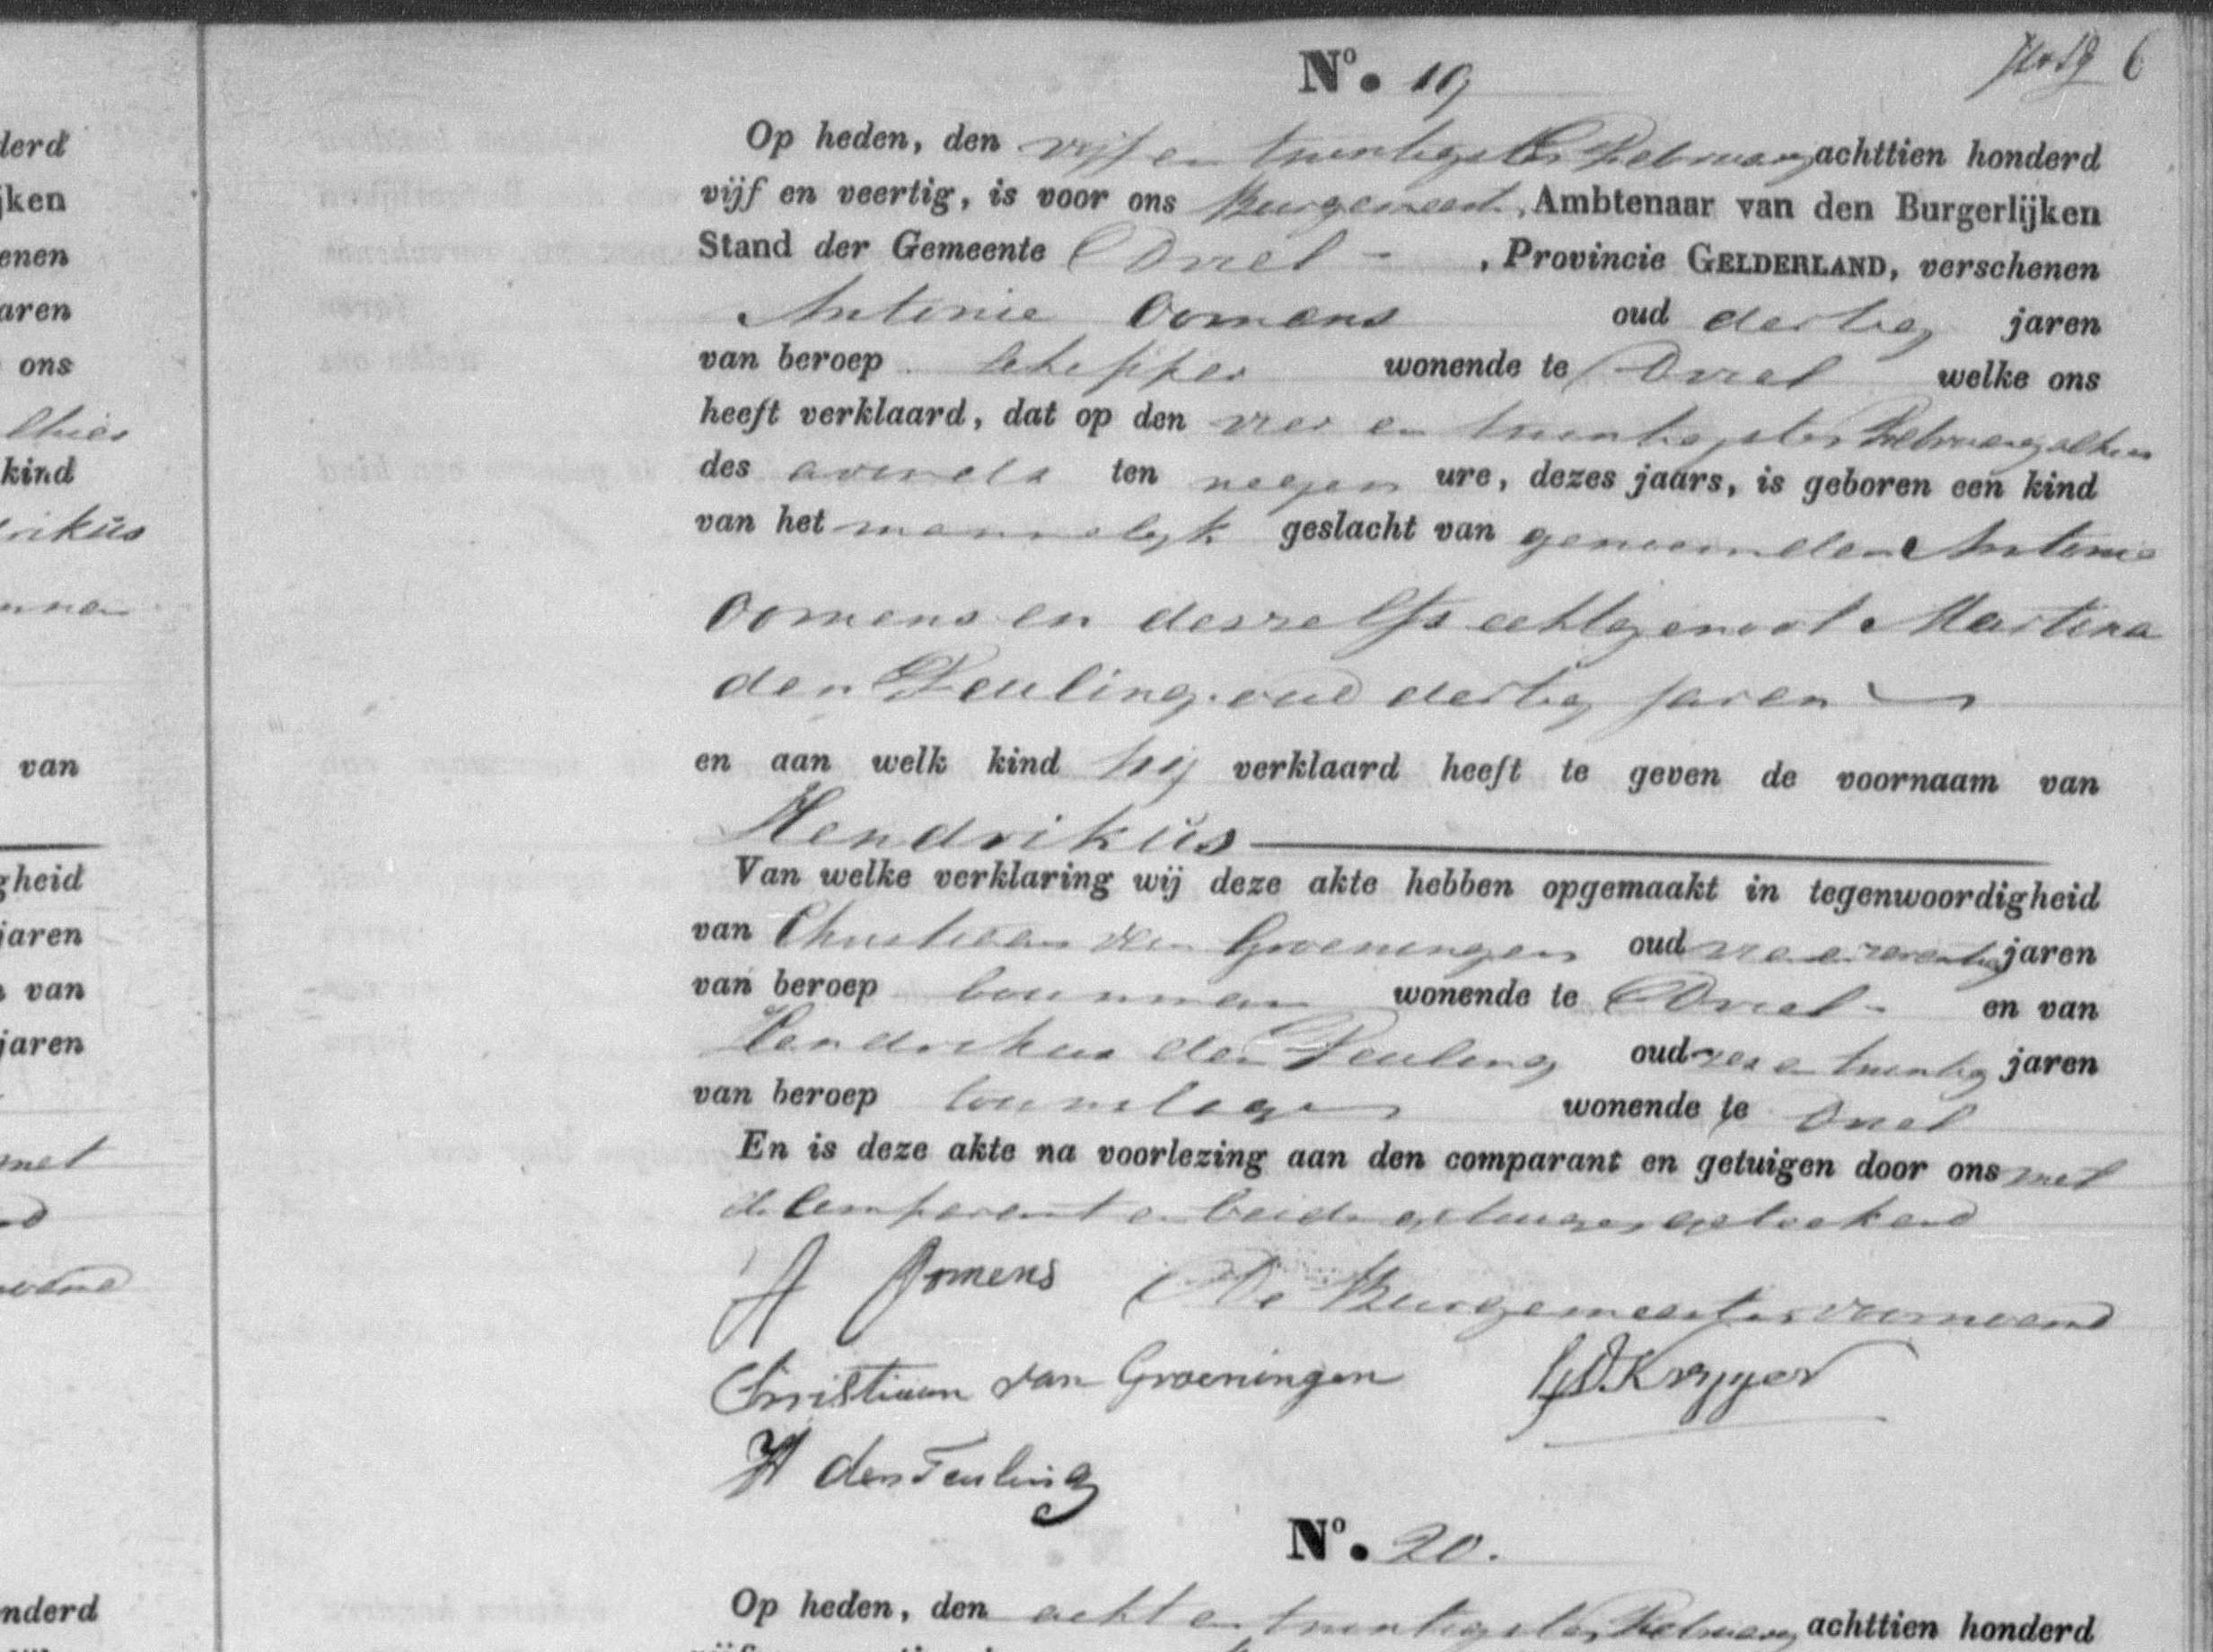 derd
jken
enen
aren
ons
alhier
kind
drikus
van
gheid
jaren
van
jaren
met
nderd
6
No. 19
Op heden, den vijf en twintigsten Februarij achttien honderd
vijf en veertig, is voor ons Burgemeester, Ambtenaar van den Burgerlijken
Stand der Gemeente Driel - , Provincie GELDERLAND, verschenen
Antonie Oomens oud dertig jaren
van beroep schipper wonende te Driel welke ons
heeft verklaard, dat op den vier en twintigsten Februarij alhier
des avonds ten negen ure, dezes jaars, is geboren een kind
van het mannelijk geslacht van genoemden Antonie
Oomens en deszelfs echtgenoot Martina
den Teuling oud dertig jaren
en aan welk kind hij verklaard heeft te geven de voornaam van
Hendrikus
Van welke verklaring wij deze akte hebben opgemaakt in tegenwoordigheid
van Christiaan van Groeningen oud jaren
van beroep bouwman wonende te Driel - en van
Hendrikus den Teuling oud zes en twintig jaren
van beroep touwslager wonende te Driel
En is deze akte na voorlezing aan den comparant en getuigen door ons met
de Comparant en beide getuigen geteekend
A Oomens De Burgemeester voornoemd
Christiaan van Groeningen
H den Teuling
No. 20.
Op heden, den acht en twintigsten Februarij achttien honderd